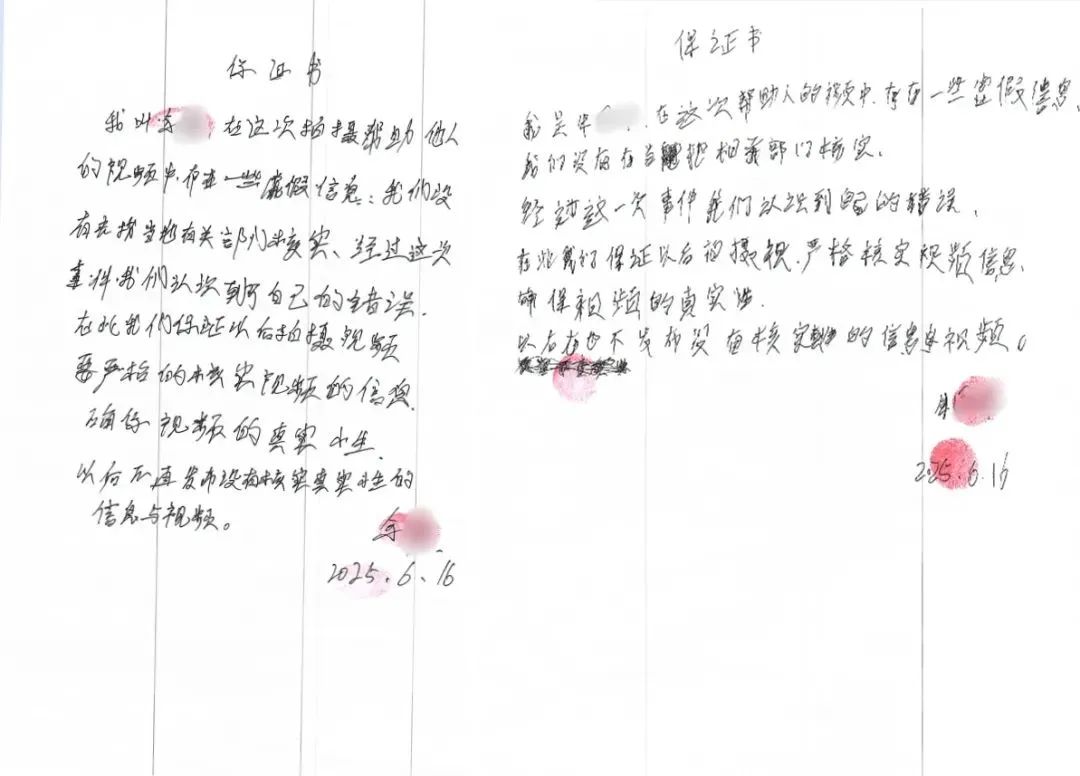 保证书
我叫 在这次拍摄帮助他人
的视频中存在一些虚假信息：我们没
有去找当地有关部门核实、经过这次
事件我们认识到了自己的错误.
在此我们保证以后拍摄视频
要严格的核实视频的信息.
确保视频的真实性.
以后不再发布没有核实真实性的
信息与视频。
余
2025.6、16
保证书
我是 ..在这次帮助人的视频中.存在一些虚假信息、
我们没有在当地相关部门核实.
经过这一次事件我们认识到的错误.
在此我们保证以后拍摄视.严格核实视频信息、
确保视频的真实性.
以后 不发布没有核实 的信息 视频。
2025.6.16